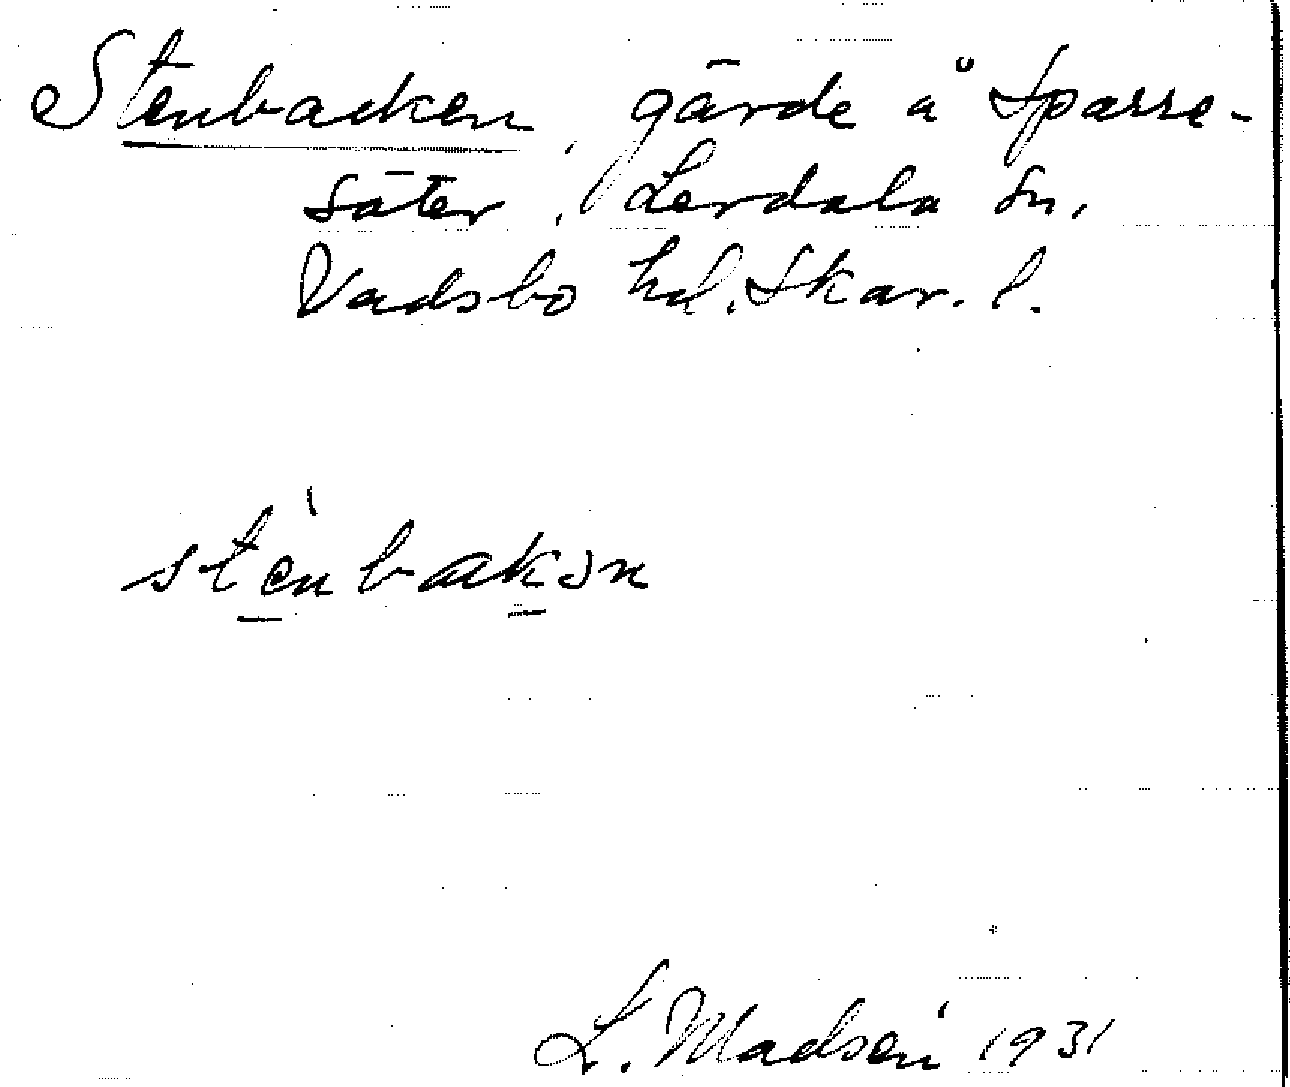 Stenbacken, gärde å Sparre-
säter, Lerdala sn,
Vadsbo hd. Skar. l.
stènbakən
L. Madsén 1931